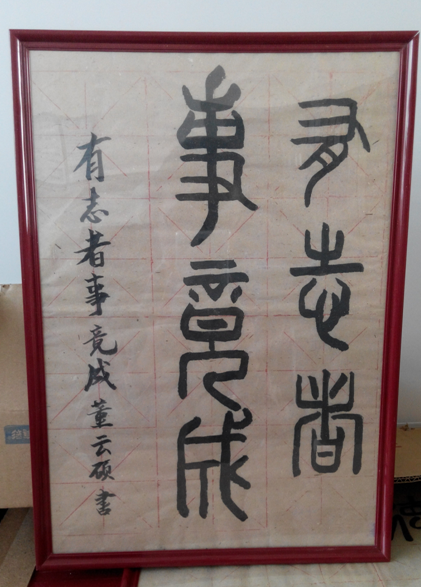 有志者
事竟成
有志者事竟成董云硕书